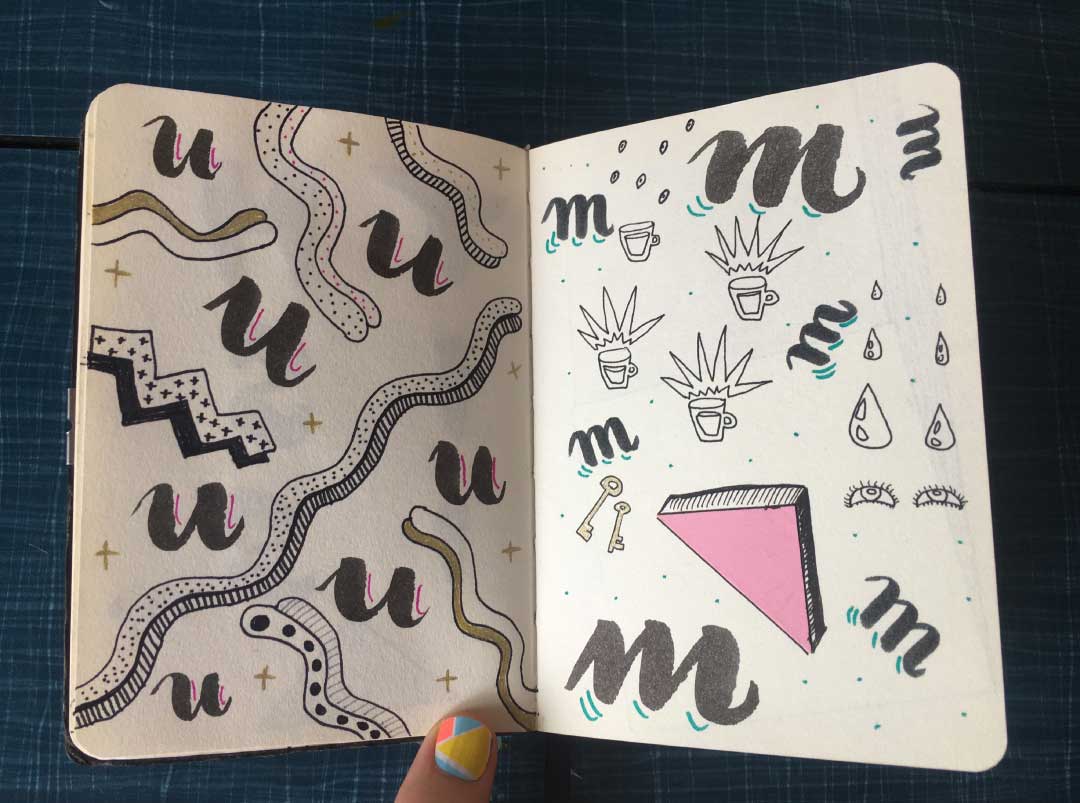 u
u
u
u
u
u
u
m
m
m
m
m
m
m